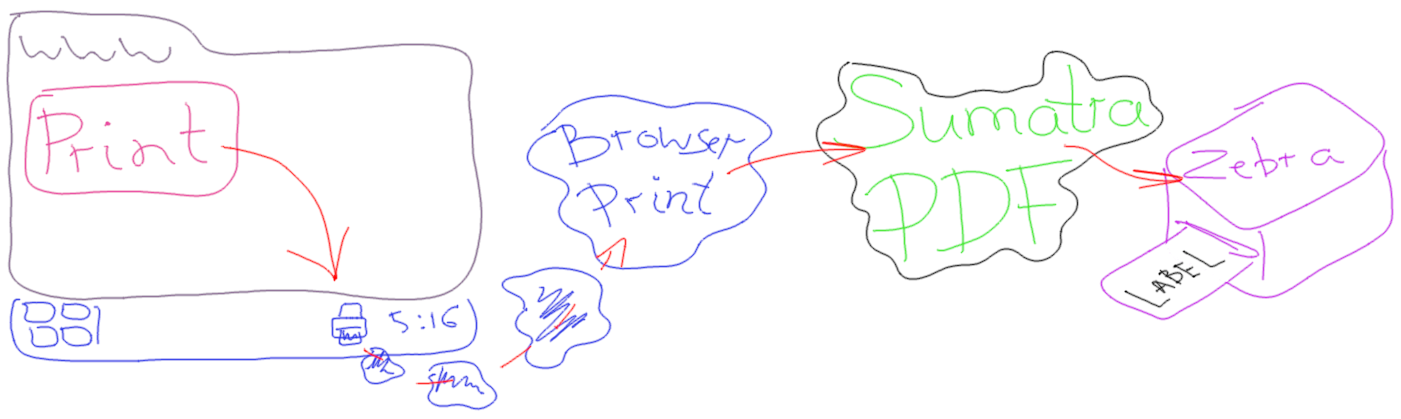 www
Print
5:16
Browser
Print
Sumatra
PDF
Zebra
LABEL